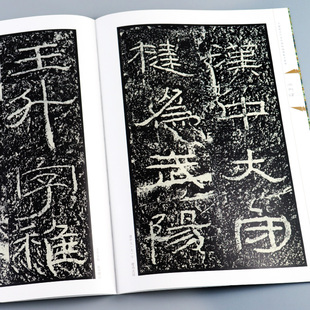 漢中大守
楗為武陽
王升字稚